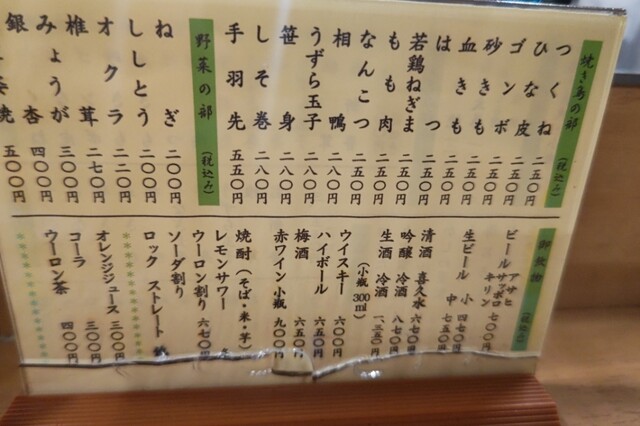 焼き鳥の部(税込み)
つくね 二五〇円
ひな皮 二五〇円
ゴンボ 二五〇円
砂きも 二五〇円
血きも 二五〇円
はつ 二五〇円
若鶏ねぎま 二五〇円
もも肉 二五〇円
なんこつ 二五〇円
相鴨 二八〇円
うずら玉子 二八〇円
笹身 二八〇円
しそ巻 二八〇円
手羽先 五五〇円
野菜の部(税込み)
ねぎ 二〇〇円
ししとう 二〇〇円
オクラ 二二〇円
椎茸 二七〇円
みょうが 三〇〇円
銀杏 四〇〇円
五〇〇円
御飲物(税込み)
ビール アサヒ サッポロ キリン 七〇〇円
生ビール 小 四七〇円
中 七五〇円
清酒 喜久水 六七〇円
吟醸 冷酒 八七〇円
生酒 冷酒 一、三五〇円
(小瓶300ml)
ウイスキー 六〇〇円
ハイボール 六五〇円
梅酒 六五〇円
赤ワイン 小瓶 九〇〇円
焼酎(そば・米・芋)
レモンサワー
ウーロン割り 六七〇円
ソーダ割り
ロック ストレート
オレンジジュース 三〇〇円
コーラ 三〇〇円
ウーロン茶 四〇〇円